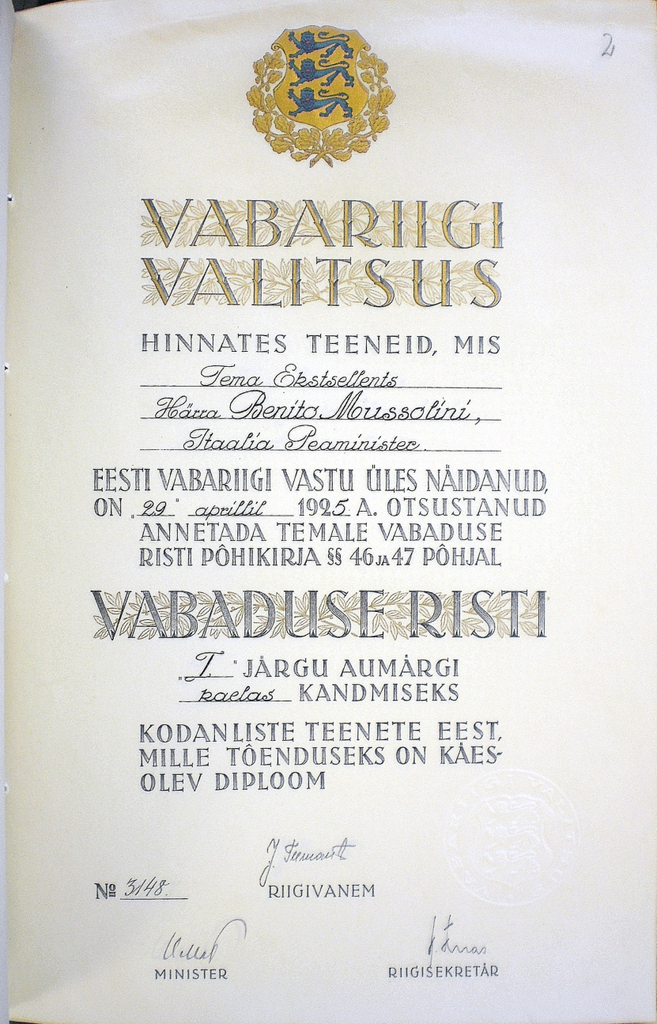 2
VABARIIGI
VALITSUS
HINNATES TEENEID, MIS
Tema Ekstsellents
Härra Benito Mussolini,
Itaalia Peaminister.
EESTI VABARIIGI VASTU ÜLES NÄIDANUD,
ON „29" aprillil 1925. A. OTSUSTANUD
ANNETADA TEMALE VABADUSE
RISTI PÕHIKIRJA §§ 46 JA 47 PÕHJAL
VABADUSE RISTI
„I" JÄRGU AUMÄRGI
kaelas KANDMISEKS
KODANLISTE TEENETE EEST,
MILLE TÕENDUSEKS ON KÄES-
OLEV DIPLOOM
№ 3148.
RIIGIVANEM
MINISTER
RIIGISEKRETÄR